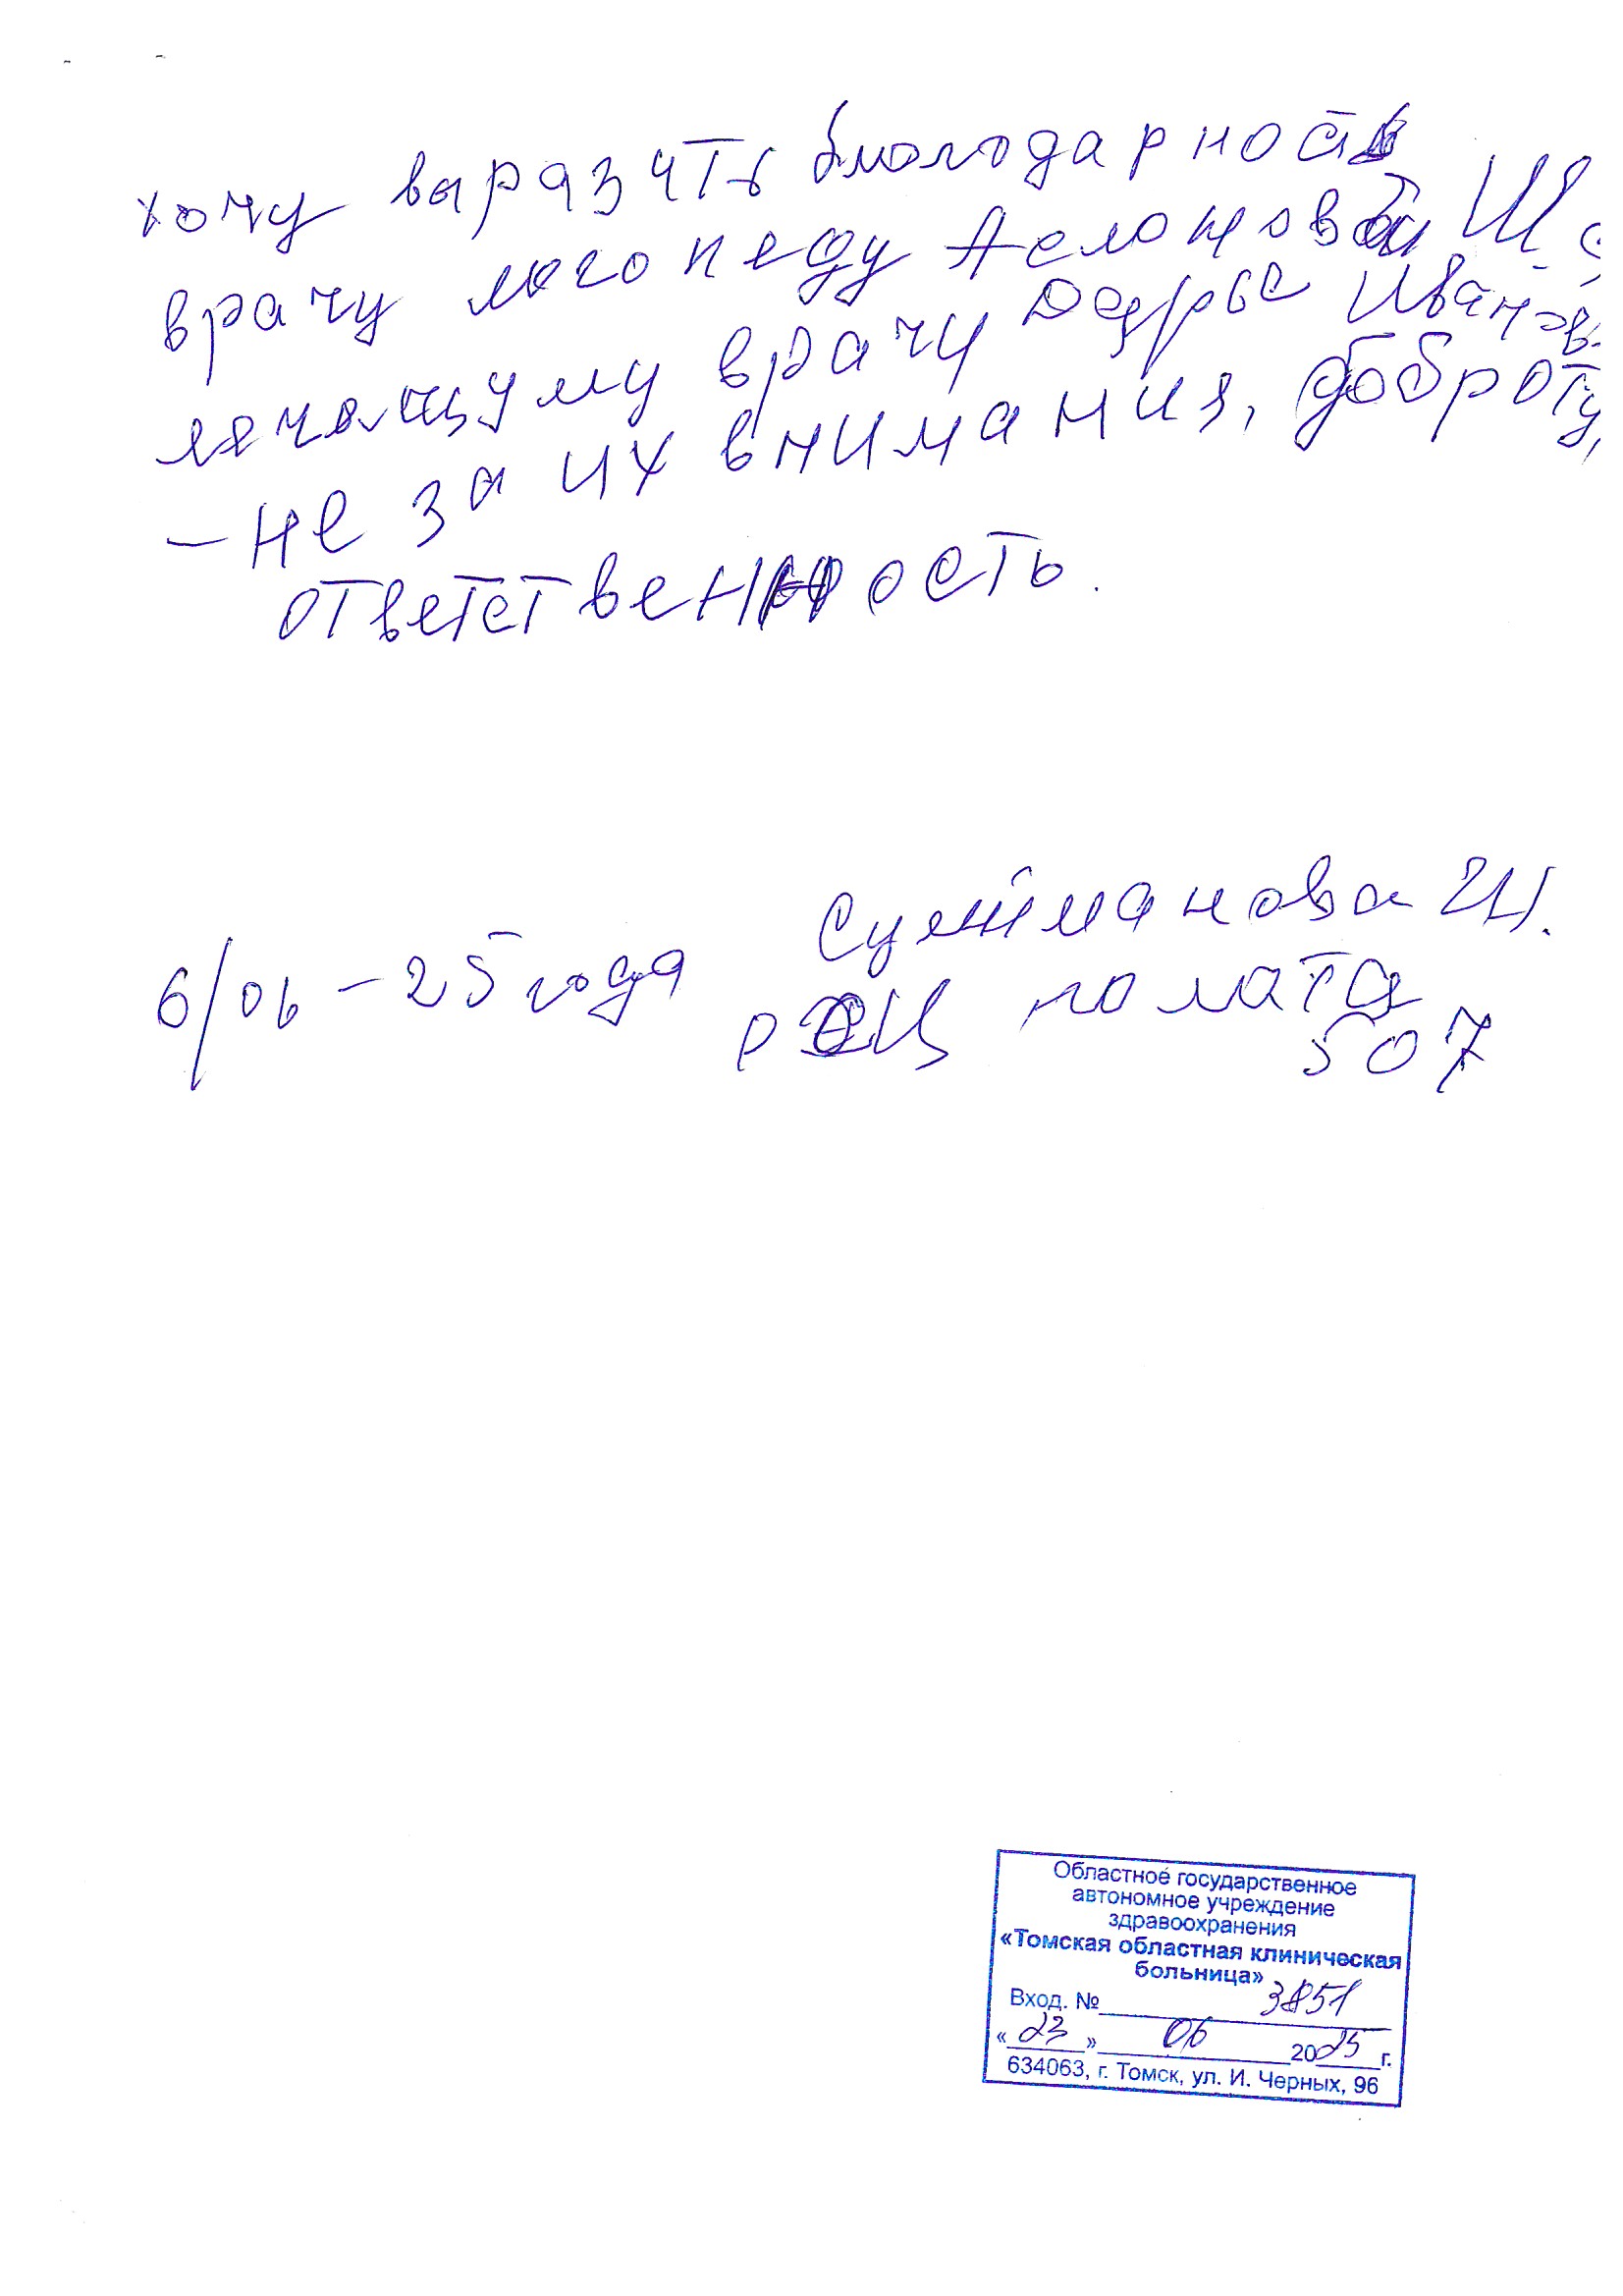 хочу выразить благодарность
врачу логопеду Аслоновой Ш
лечащуму врачу Дарье Иванов
-не за их внимания, доброту,
ответственность.
Сулейманова
6/06-25 года
РСЦ полата
507
Областное государственное
автономное учреждение
здравоохранения
«Томская областная клиническая
больница»
Вход. № 3851
«23» 06 2025 г.
634063, г. Томск, ул. И. Черных, 96